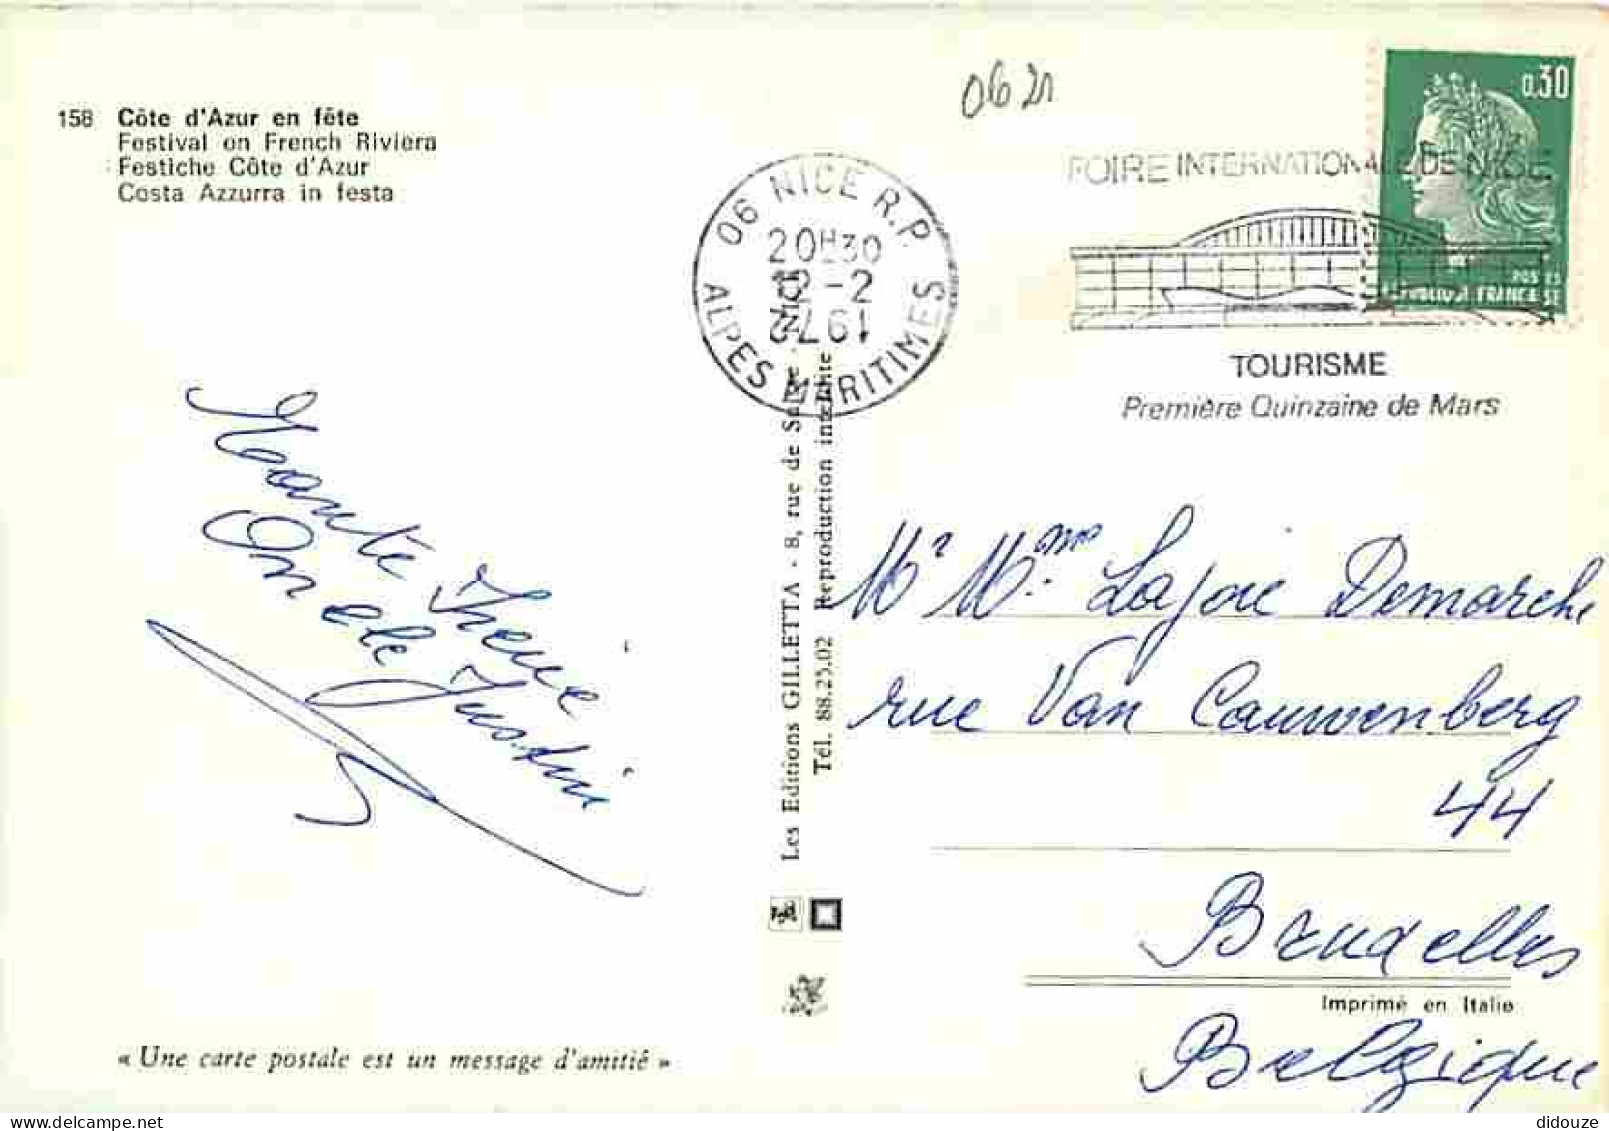 158 Côte d'Azur en fête
Festival on French Riviera
Festiche Côte d'Azur
Costa Azzurra in festa
0621
06 NICE R.P.
20H30
12-2
ALPES MARITIMES
FOIRE INTERNATIONALE DE NICE
TOURISME
Première Quinzaine de Mars
0,30
POSTES
REPUBLIQUE FRANCAISE
Tante Irène
Oncle Justin
Les Editions GILLETTA - 8, rue de
Tél. 88.25.02 Reproduction interdite
Mr Mme Lajoie Demarche
rue Van Cauwenberg
44
Bruxelles
Imprimé en Italie
Belgique
« Une carte postale est un message d'amitié »
didouze